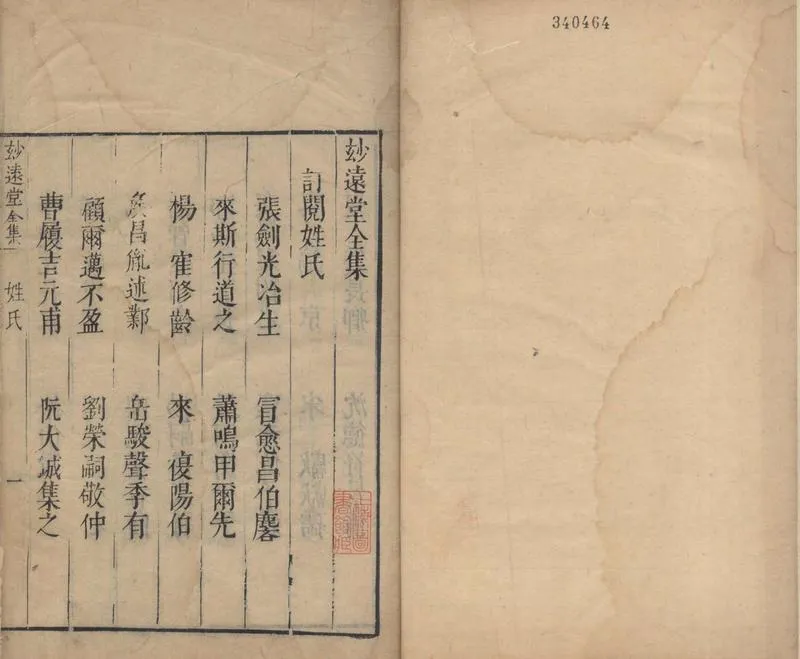 340464
妙遠堂全集
訂閱姓氏
張劍光冶生 冒愈昌伯麐
來斯行道之 蕭鳴甲爾先
楊寉修齡 來復陽伯
昌胤述鄴 岳駿聲季有
顧爾邁不盈 劉榮嗣敬仲
曹履吉元甫 阮大鋮集之
妙遠堂全集 姓氏 一